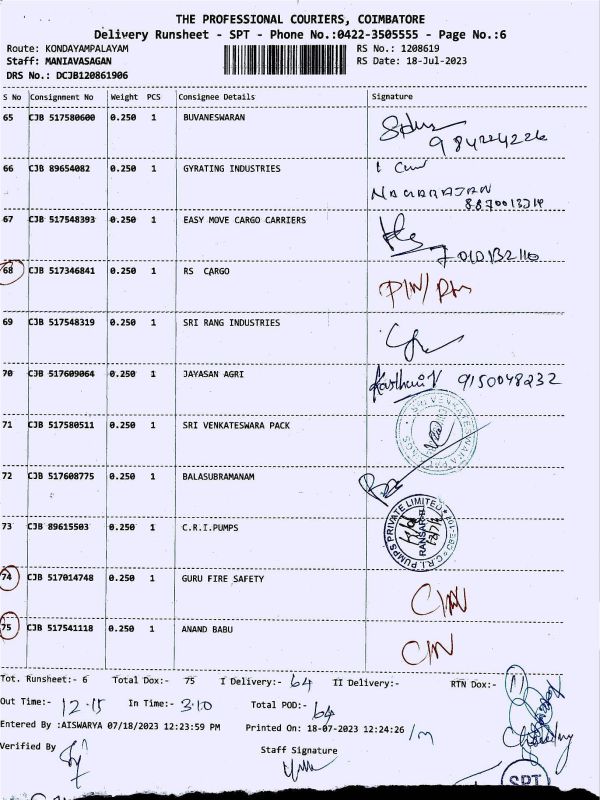 THE PROFESSIONAL COURIERS, COIMBATORE
Delivery Runsheet - SPT - Phone No.:0422-3505555 - Page No.:6
Route: KONDAYAMPALAYAM RS No.: 1208619
Staff: MANIAVASAGAN RS Date: 18-Jul-2023
DRS No.: DCJB120861906
S No Consignment No Weight PCS Consignee Details Signature
65 CJB 517580600 0.250 1 BUVANESWARAN
984224226
66 CJB 89654082 0.250 1 GYRATING INDUSTRIES
NAGARAJAN
67 CJB 517548393 0.250 1 EASY MOVE CARGO CARRIERS
68 CJB 517346841 0.250 1 RS CARGO
69 CJB 517548319 0.250 1 SRI RANG INDUSTRIES
70 CJB 517609064 0.250 1 JAYASAN AGRI 9150048232
71 CJB 517580511 0.250 1 SRI VENKATESWARA PACK
SRI VENKATESWARA PACKINGS
72 CJB 517608775 0.250 1 BALASUBRAMANAM
73 CJB 89615503 0.250 1 C.R.I.PUMPS
C.R.I. PUMPS PRIVATE LIMITED
74 CJB 517014748 0.250 1 GURU FIRE SAFETY
75 CJB 517541118 0.250 1 ANAND BABU
Tot. Runsheet:- 6 Total Dox:- 75 I Delivery:- 64 II Delivery:- RTN Dox:- 11
Out Time:- 12.15 In Time:- 3.10 Total POD:- 64
Entered By :AISWARYA 07/18/2023 12:23:59 PM Printed On: 18-07-2023 12:24:26
Verified By Staff Signature
SPT